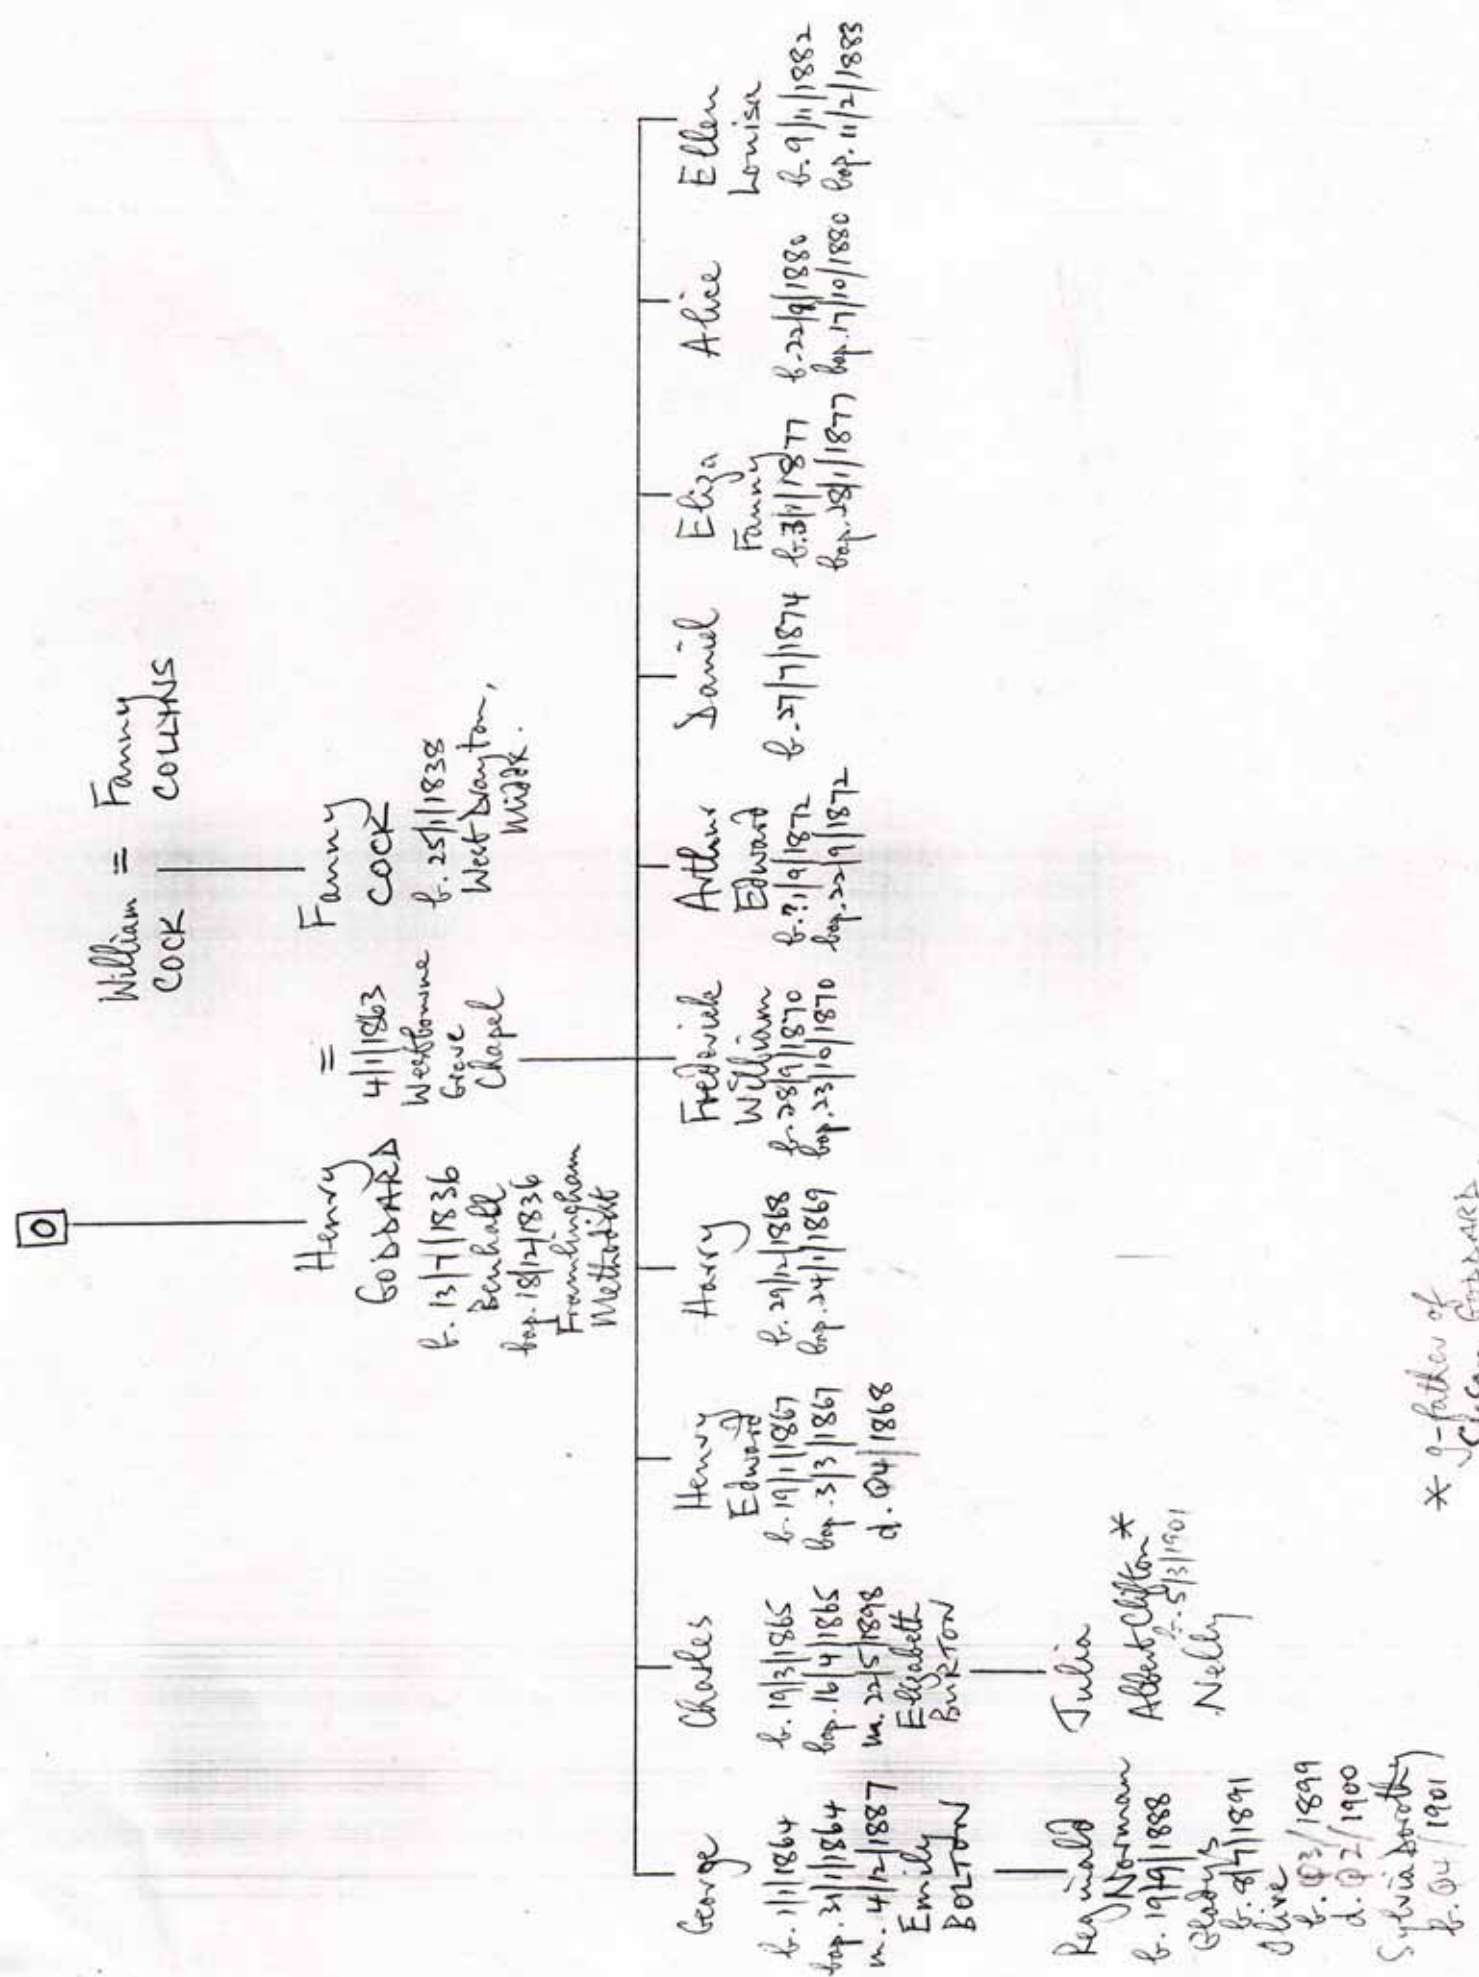 0
William = Fanny
COCK COLLINS
Henry = Fanny
GODDARD 4/1/1863 COCK
b. 13/7/1836 Westbourne b. 25/1/1838
Benhall Grove West Drayton,
bap. 18/12/1836 Chapel Middx.
Framlingham
Methodist
George
b. 1/1/1864
bap. 31/1/1864
m. 4/12/1887
Emily
BOLTON
Reginald
Norman
b. 19/9/1888
Gladys
b. 8/7/1891
Olive
b. Q3/1899
d. Q2/1900
Sylvia Dorothy
b. Q4/1901
Charles
b. 19/3/1865
bap. 16/4/1865
m. 22/5/1898
Elizabeth
BURTON
Julia
Albert Clifton *
b. 5/3/1901
Nelly
Henry
Edward
b. 19/1/1867
bap. 3/3/1867
d. Q4/1868
Harry
b. 29/12/1868
bap. 24/1/1869
Frederick
William
b. 28/9/1870
bap. 23/10/1870
Arthur
Edward
b. ?/9/1872
bap. 22/9/1872
Daniel
b. 27/7/1874
Eliza
Fanny
b. 3/1/1877
bap. 28/1/1877
Alice
b. 22/8/1880
bap. 17/10/1880
Ellen
Louisa
b. 9/11/1882
bap. 11/2/1883
* g-father of
GODDARD